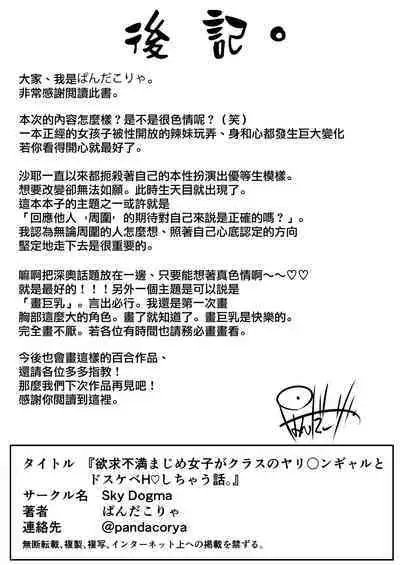 後記。
大家、我是ぱんだこりゃ。
非常感謝閱讀此書。
本次的內容怎麼樣？是不是很色情呢？（笑）
一本正經的女孩子被性開放的辣妹玩弄、身和心都發生巨大變化
若你看得開心就最好了。
沙耶一直以來都扼殺著自己的本性扮演出優等生模樣。
想要改變卻無法如願。此時生天目就出現了。
這本本子的主題之一或許就是
「回應他人（周圍）的期待對自己來說是正確的嗎？」。
我認為無論周圍的人怎麼想、照著自己心底認定的方向
堅定地走下去是很重要的。
嘛啊把深奧話題放在一邊、只要能想著真色情啊～～♡♡
就是最好的！！！另外一個主題是可以說是
「畫巨乳」。言出必行。我還是第一次畫
胸部這麼大的角色。畫了就知道了。畫巨乳是快樂的。
完全畫不厭。若各位有時間也請務必畫畫看。
今後也會畫這樣的百合作品、
還請各位多多指教！
那麼我們下次作品再見吧！
感謝你閱讀到這裡。
タイトル 『欲求不満まじめ女子がクラスのヤリ○ンギャルと
ドスケベH♡しちゃう話。』
サークル名 Sky Dogma
著者 ぱんだこりゃ
連絡先 @pandacorya
無断転載、複製、複写、インターネット上への掲載を禁ずる。